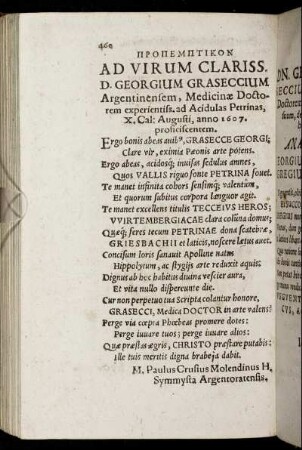 460
ΠΡΟΠΕΜΠΤΙΚΟΝ
AD VIRUM CLARISS.
D. GEORGIUM GRASECCIUM
Argentinensem, Medicinæ Docto-
rem experientiss. ad Acidulas Petrinas,
X. Cal: Augusti, anno 1607.
proficiscentem.
Ergo bonis abeas avibꝰ, GRASECCE GEORGI;
Clare vir, eximia Pæonis arte potens.
Ergo abeas, acidosq́; invisas sedulus amnes,
Quos VALLIS riguo fonte PETRINA fovet.
Te manet infinita cohors sensimq́; valentium,
Et quorum subitus corpora languor agit.
Te manet excellens titulis TECCEIUS HEROS;
VVIRTEMBERGIACAE clara columna domus;
Quæq́; feres tecum PETRINAE dona scatebræ,
GRIESBACHII et laticis, noscere lætus avet.
Concisum loris sanavit Apolline natum
Hippolytum, ac stygijs arte reduxit aquis:
Dignus ab hoc habitus divina vescier aura,
Et vita nullo dispereunte die.
Cur non perpetuo tua scripta colantur honore,
GRASECCI, Medica DOCTOR in arte valens?
Perge via cœpta Phœbeas promere dotes:
Perge iuvare tuos; perge iuvare alios:
Quæ præstas ægris, CHRISTO præstare putabis:
Ille tuis meritis digna brabeja dabit.
M. Paulus Crusius Molendinus H.
Symmysta Argentoratensis.